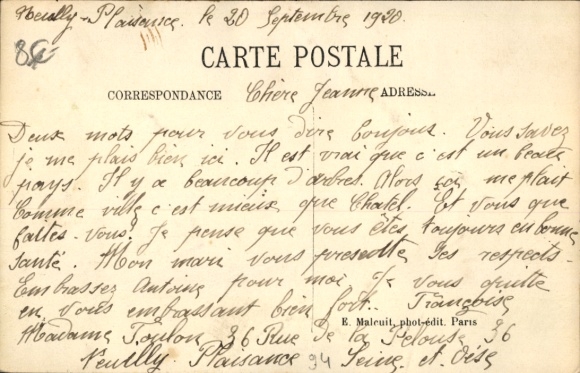 Neuilly-Plaisance le 20 Septembre 1920.
CARTE POSTALE
CORRESPONDANCE Chère Jeanne ADRESSE
Deux mots pour vous dire bonjour. Vous savez
je me plais bien ici. Il est vrai que c'est un beau
pays. Il y a beaucoup d'arbres. Alors me plait
Comme ville c'est mieux que Chatel. Et vous que
faites-vous? Je pense que vous êtes toujours en bonne
santé. Mon mari vous presente Ses respects.
Embrassez Antoine pour moi Je vous quitte
en vous embrassant bien fort. Françoise
E. Malcuit, phot-édit. Paris
Madame Toulon 36 Rue De la Pelouse 36
Neuilly Plaisance 94 Seine et Oise